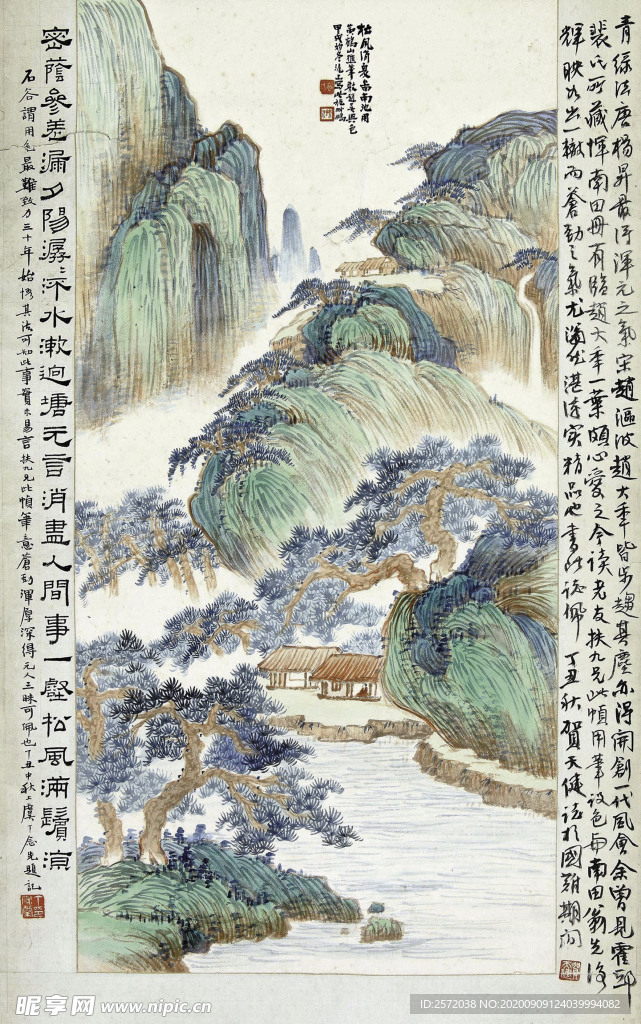 松風消夏 南田用
黃鶴山樵筆
青綠法唐楊昇最得渾元之氣宋趙漚波趙大年皆步趨其塵亦得開創一代風會余曾見霍邱
裴氏所藏惲南田冊有臨趙大年一葉頗心愛之今讀老友扶九兄此幀用筆設色与南田翁先後
輝映如出一轍而蒼勁之氣尤
實精品也書此誌佩 丁丑秋賀天健識於國難期間
密蔭參差漏夕陽潺潺汴水漱迴塘元言消盡人間事一壑松風滿鬢涼
石谷謂用色最難致力三十年始悟其法可知此事實未易言扶九兄此幀筆意蒼勁渾厚深得元人三昧可佩也丁丑中秋上虞丁念先題記
昵享网 www.nipic.cn
ID:2572038 NO:20200909124039994082